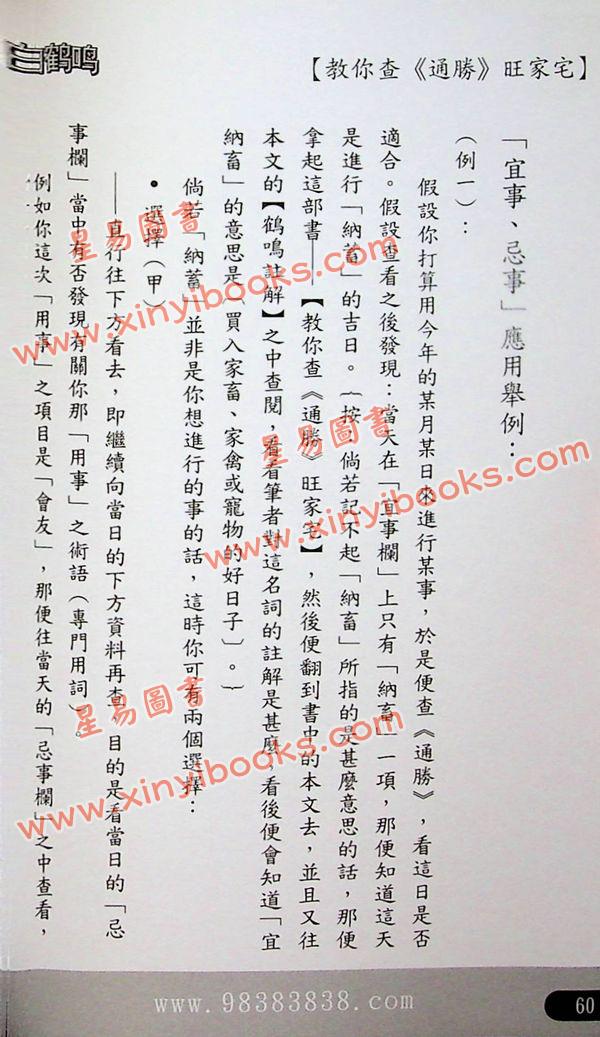 白鶴鳴
【教你查《通勝》旺家宅】
「宜事、忌事」應用舉例：
（例一）：
假設你打算用今年的某月某日來進行某事，於是便查《通勝》，看這日是否
適合。假設查看之後發現：當天在「宜事欄」上只有「納畜」一項，那便知道這天
是進行「納蓄」的吉日。｛按：倘若記不起「納畜」所指的是甚麼意思的話，那便
拿起這部書——【教你查《通勝》旺家宅】，然後便翻到書中的本文去，並且又往
本文的【鶴鳴註解】之中查閱，看看筆者對這名詞的註解是甚麼，看後便會知道「宜
納畜」的意思是（買入家畜、家禽或寵物的好日子）。｝
倘若「納蓄」並非是你想進行的事的話，這時你可有兩個選擇：
•選擇（甲）
——直行往下方看去，即繼續向當日的下方資料再查，目的是看當日的「忌
事欄」當中有否發現有關你那「用事」之術語（專門用詞）。
例如你這次「用事」之項目是「會友」，那便往當天的「忌事欄」之中查看，
星易圖書
www.xinyibooks.com
星易圖書
www.xinyibooks.com
星易圖書
www.xinyibooks.com
www.98383838.com
60